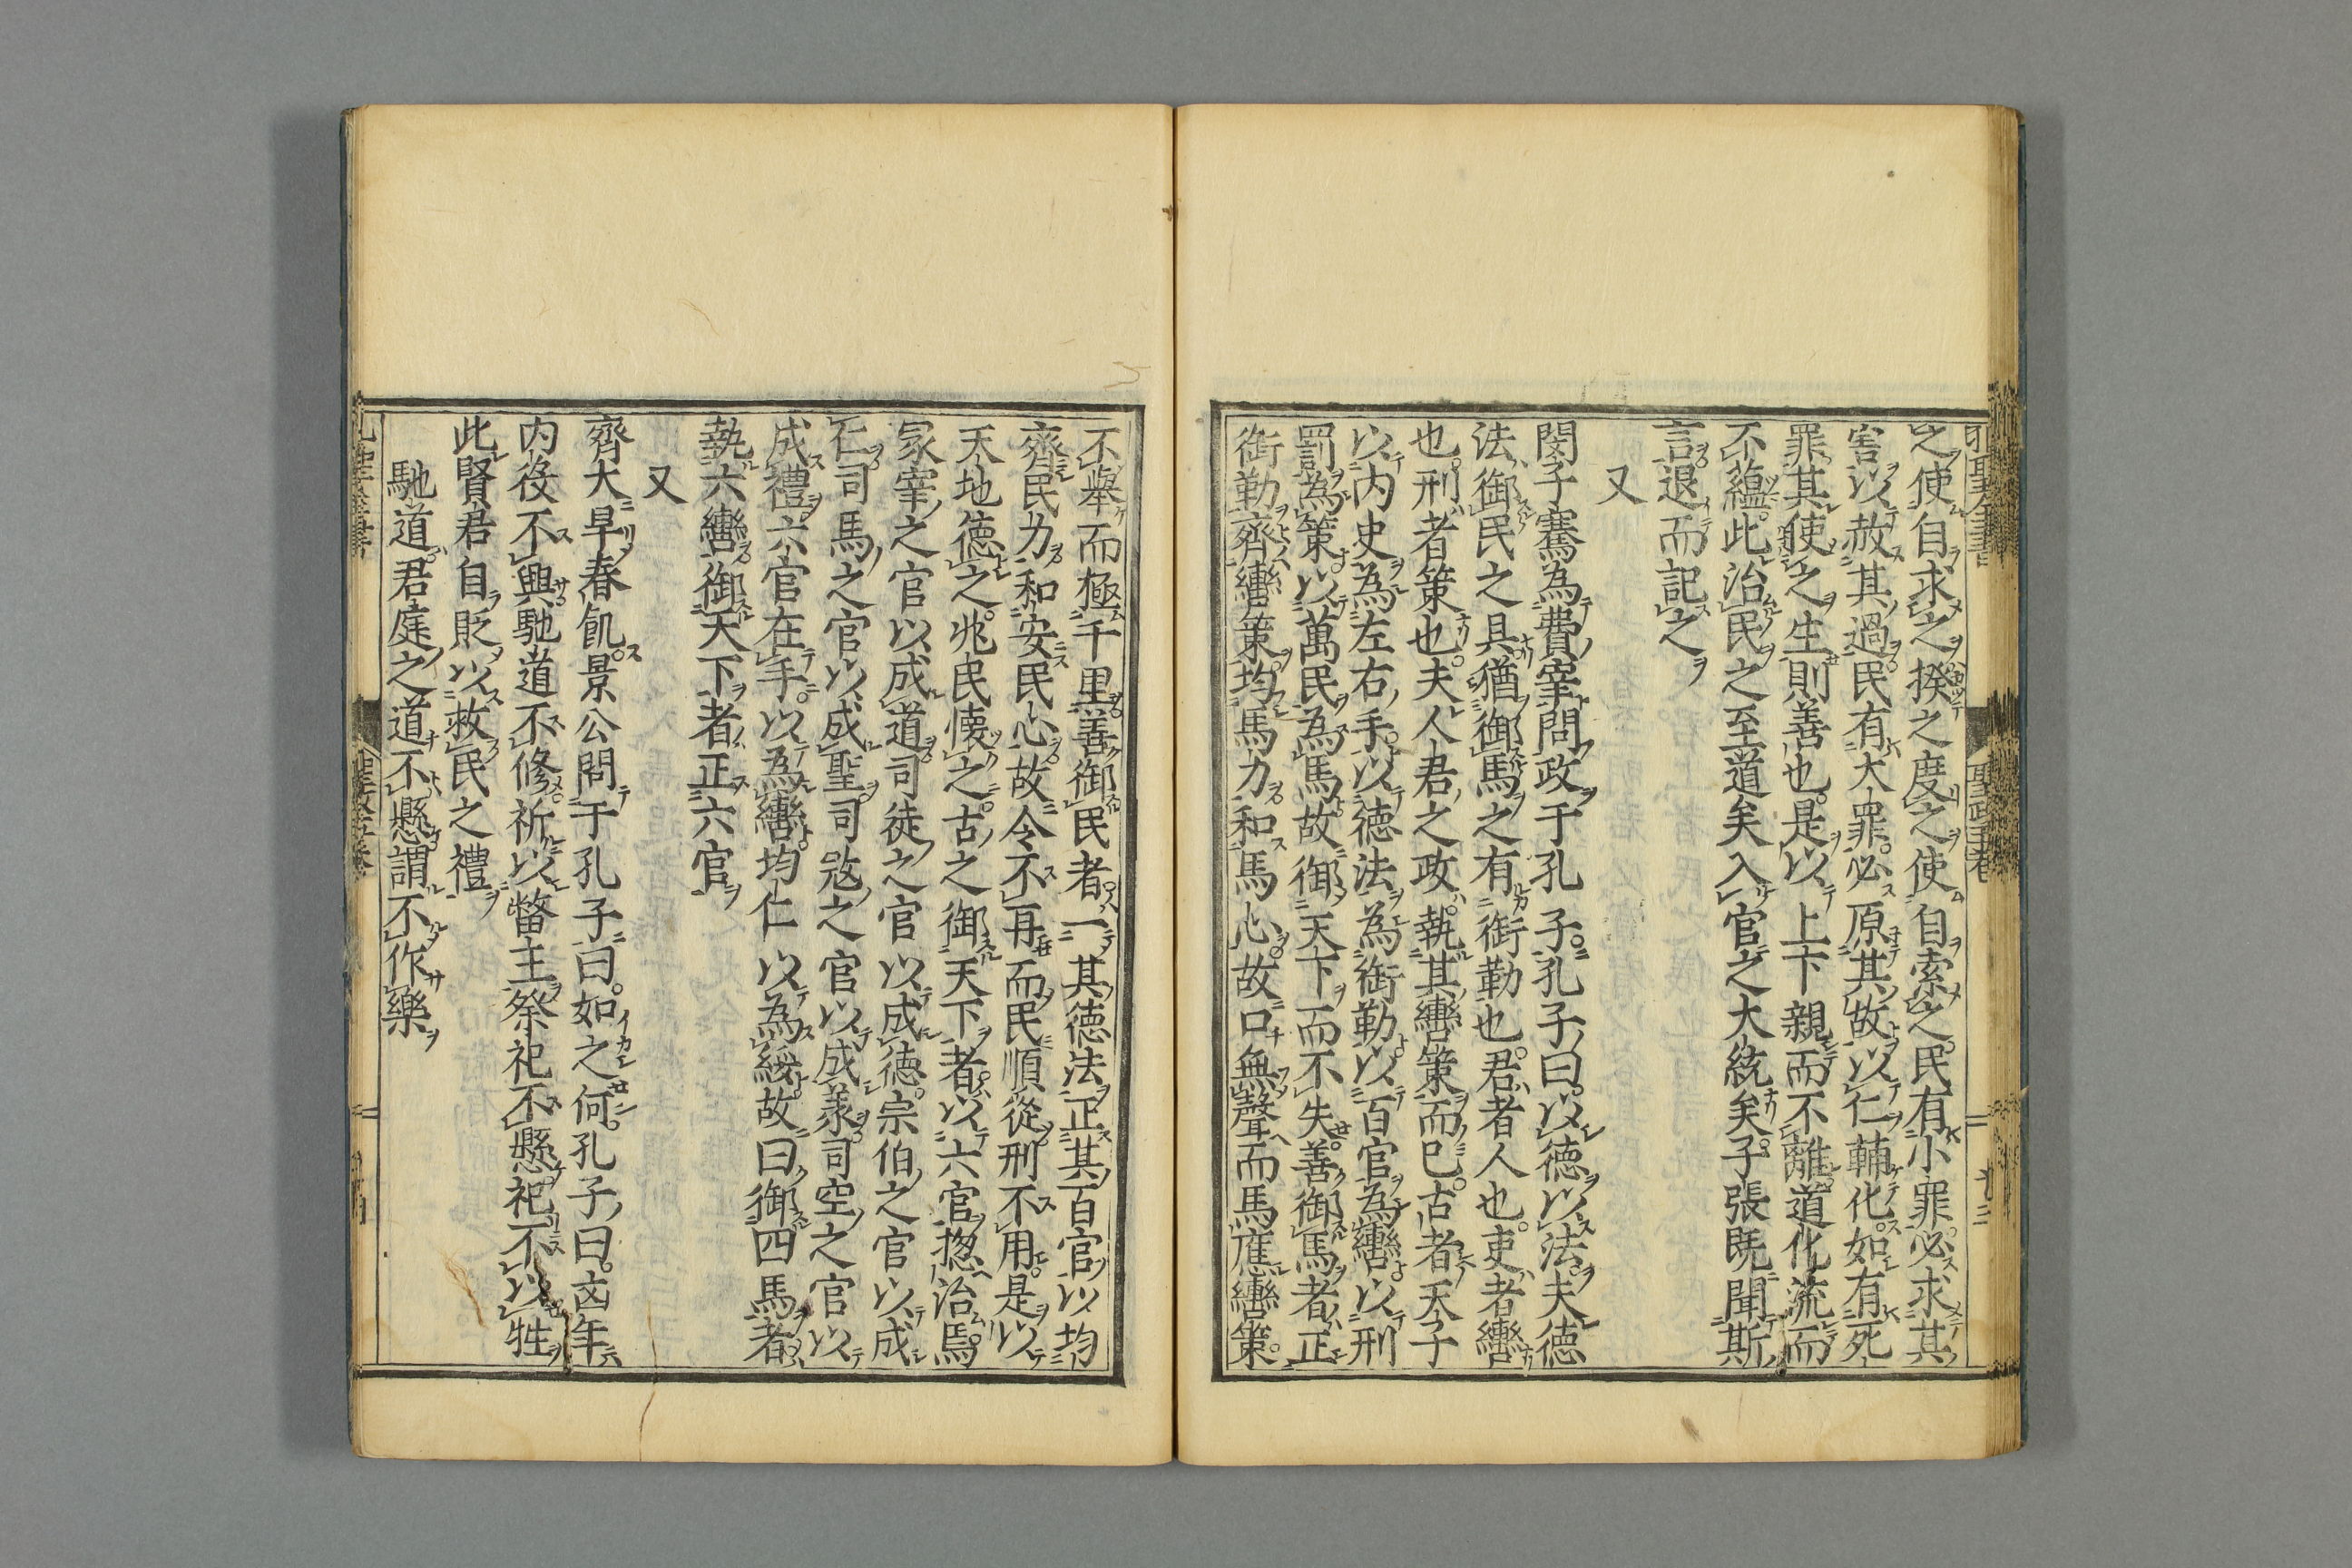 之使自求之揆之度之使自索之民有小罪必求其
害以赦其過民有大罪必原其故以仁輔化如有死
罪其使之生則善也是以上下親而不離道化流而
不蘊此治民之至道矣入官之大統矣子張既聞斯
言退而記之
又
閔子騫為費宰問政于孔子孔子曰以德以法夫德
法御民之具猶御馬之有銜勒也君者人也吏者轡
也刑者策也夫人君之政執其轡策而已古者天子
以內史為左右手以德法為銜勒以百官為轡以刑
罰為策以萬民為馬故御天下而不失善御馬者正
銜勒齊轡策均馬力和馬心故口無聲而馬應轡策
不舉而極千里善御民者一其德法正其百官以均
齊民力和安民心故令不再而民順從刑不用是以
天地德之兆民懷之古之御天下者以六官揔治焉
冢宰之官以成道司徒之官以成德宗伯之官以成
仁司馬之官以成聖司寇之官以成義司空之官以
成禮六官在手以為轡均仁以為綏故曰御四馬者
執六轡御天下者正六官
又
齊大旱春飢景公問于孔子曰如之何孔子曰凶年
內役不興馳道不修祈以幣主祭祀不懸祀不以牲
此賢君自貶以救民之禮
馳道君庭之道不懸謂不作樂